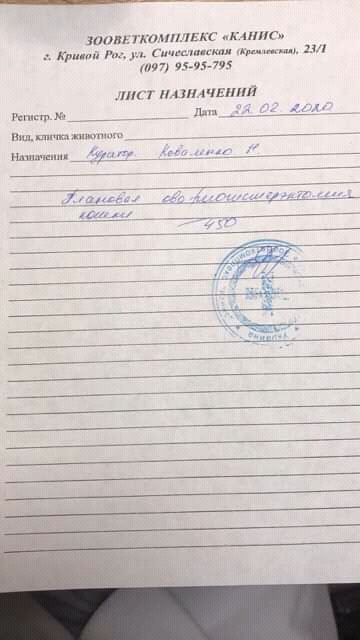 ЗООВЕТКОМПЛЕКС «КАНИС»
г. Кривой Рог, ул. Сичеславская (Кремлевская), 23/1
(097) 95-95-795
ЛИСТ НАЗНАЧЕНИЙ
Регистр. № Дата 22.02.2020
Вид, кличка животного
Назначения Куратор. Коваленко Н.
Плановая ово
кошки
450